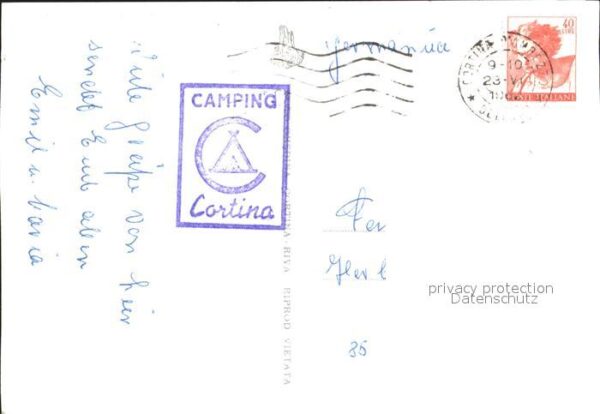 Viele Grüße von hier
sendet Euch allen
Emil u. Maria
CAMPING
Cortina
CORTINA-RIVA RIPROD VIETATA
Germania
CORTINA D'AMPEZZO
9-10
23-VII
40
LIRE
POSTE ITALIANE
35
privacy protection
Datenschutz